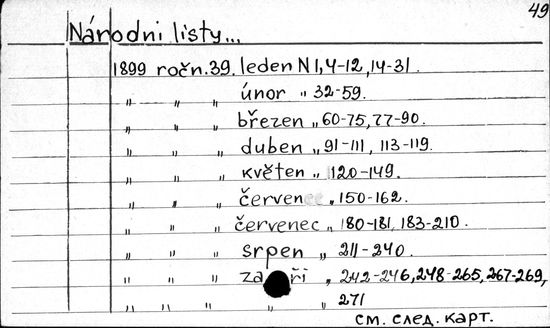 49
Národni listy...
1899 ročn. 39. leden N 1, 4-12, 14-31.
„ „ „ únor „ 32-59.
„ „ „ březen „ 60-75, 77-90.
„ „ „ duben „ 91-111, 113-119.
„ „ „ květen „ 120-149.
„ „ „ červenec „ 150-162.
„ „ „ červenec „ 180-181, 183-210.
„ „ „ srpen „ 211-240.
„ „ „ září „ 242-246, 248-265, 267-269,
„ „ „ „ „ 271
см. след. карт.